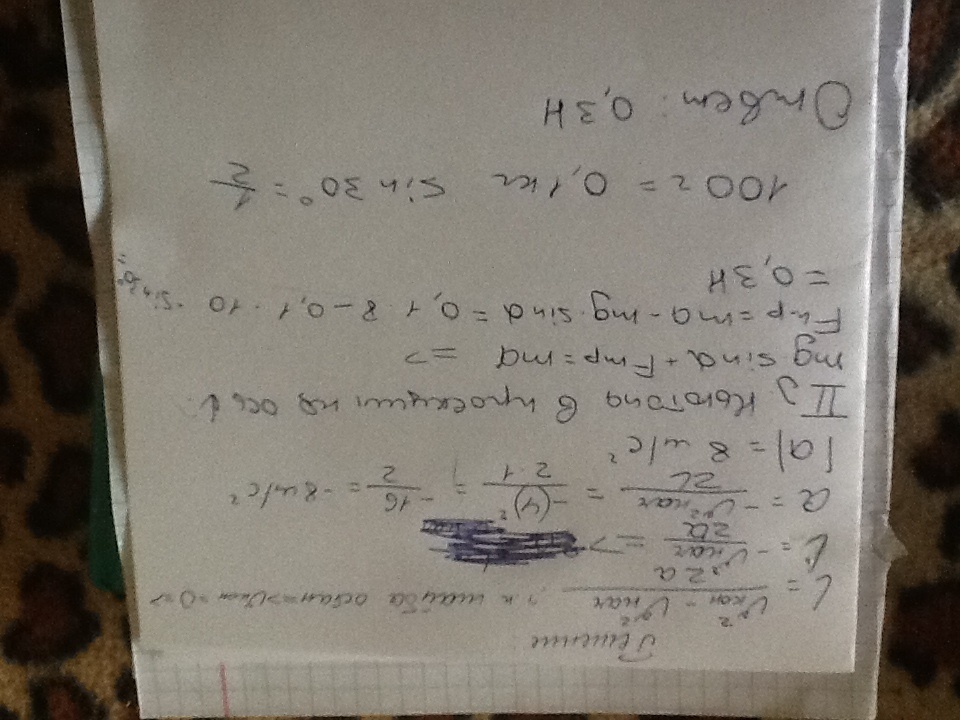 Решение:
L = V²кон - V²нач / 2a т.к шайба остан => Vкон = 0 =>
L = - V²нач / 2a =>
a = - V²нач / 2L = -(4)² / 2·1 = -16 / 2 = -8 м/с²
|a| = 8 м/с²
II з Ньютона в проекции на ось L:
mg sinα + Fтр = ma =>
Fтр = ma - mg · sinα = 0,1 · 8 - 0,1 · 10 · sin 30° =
= 0,3 Н
100 г = 0,1 кг sin 30° = 1/2
Ответ: 0,3 Н